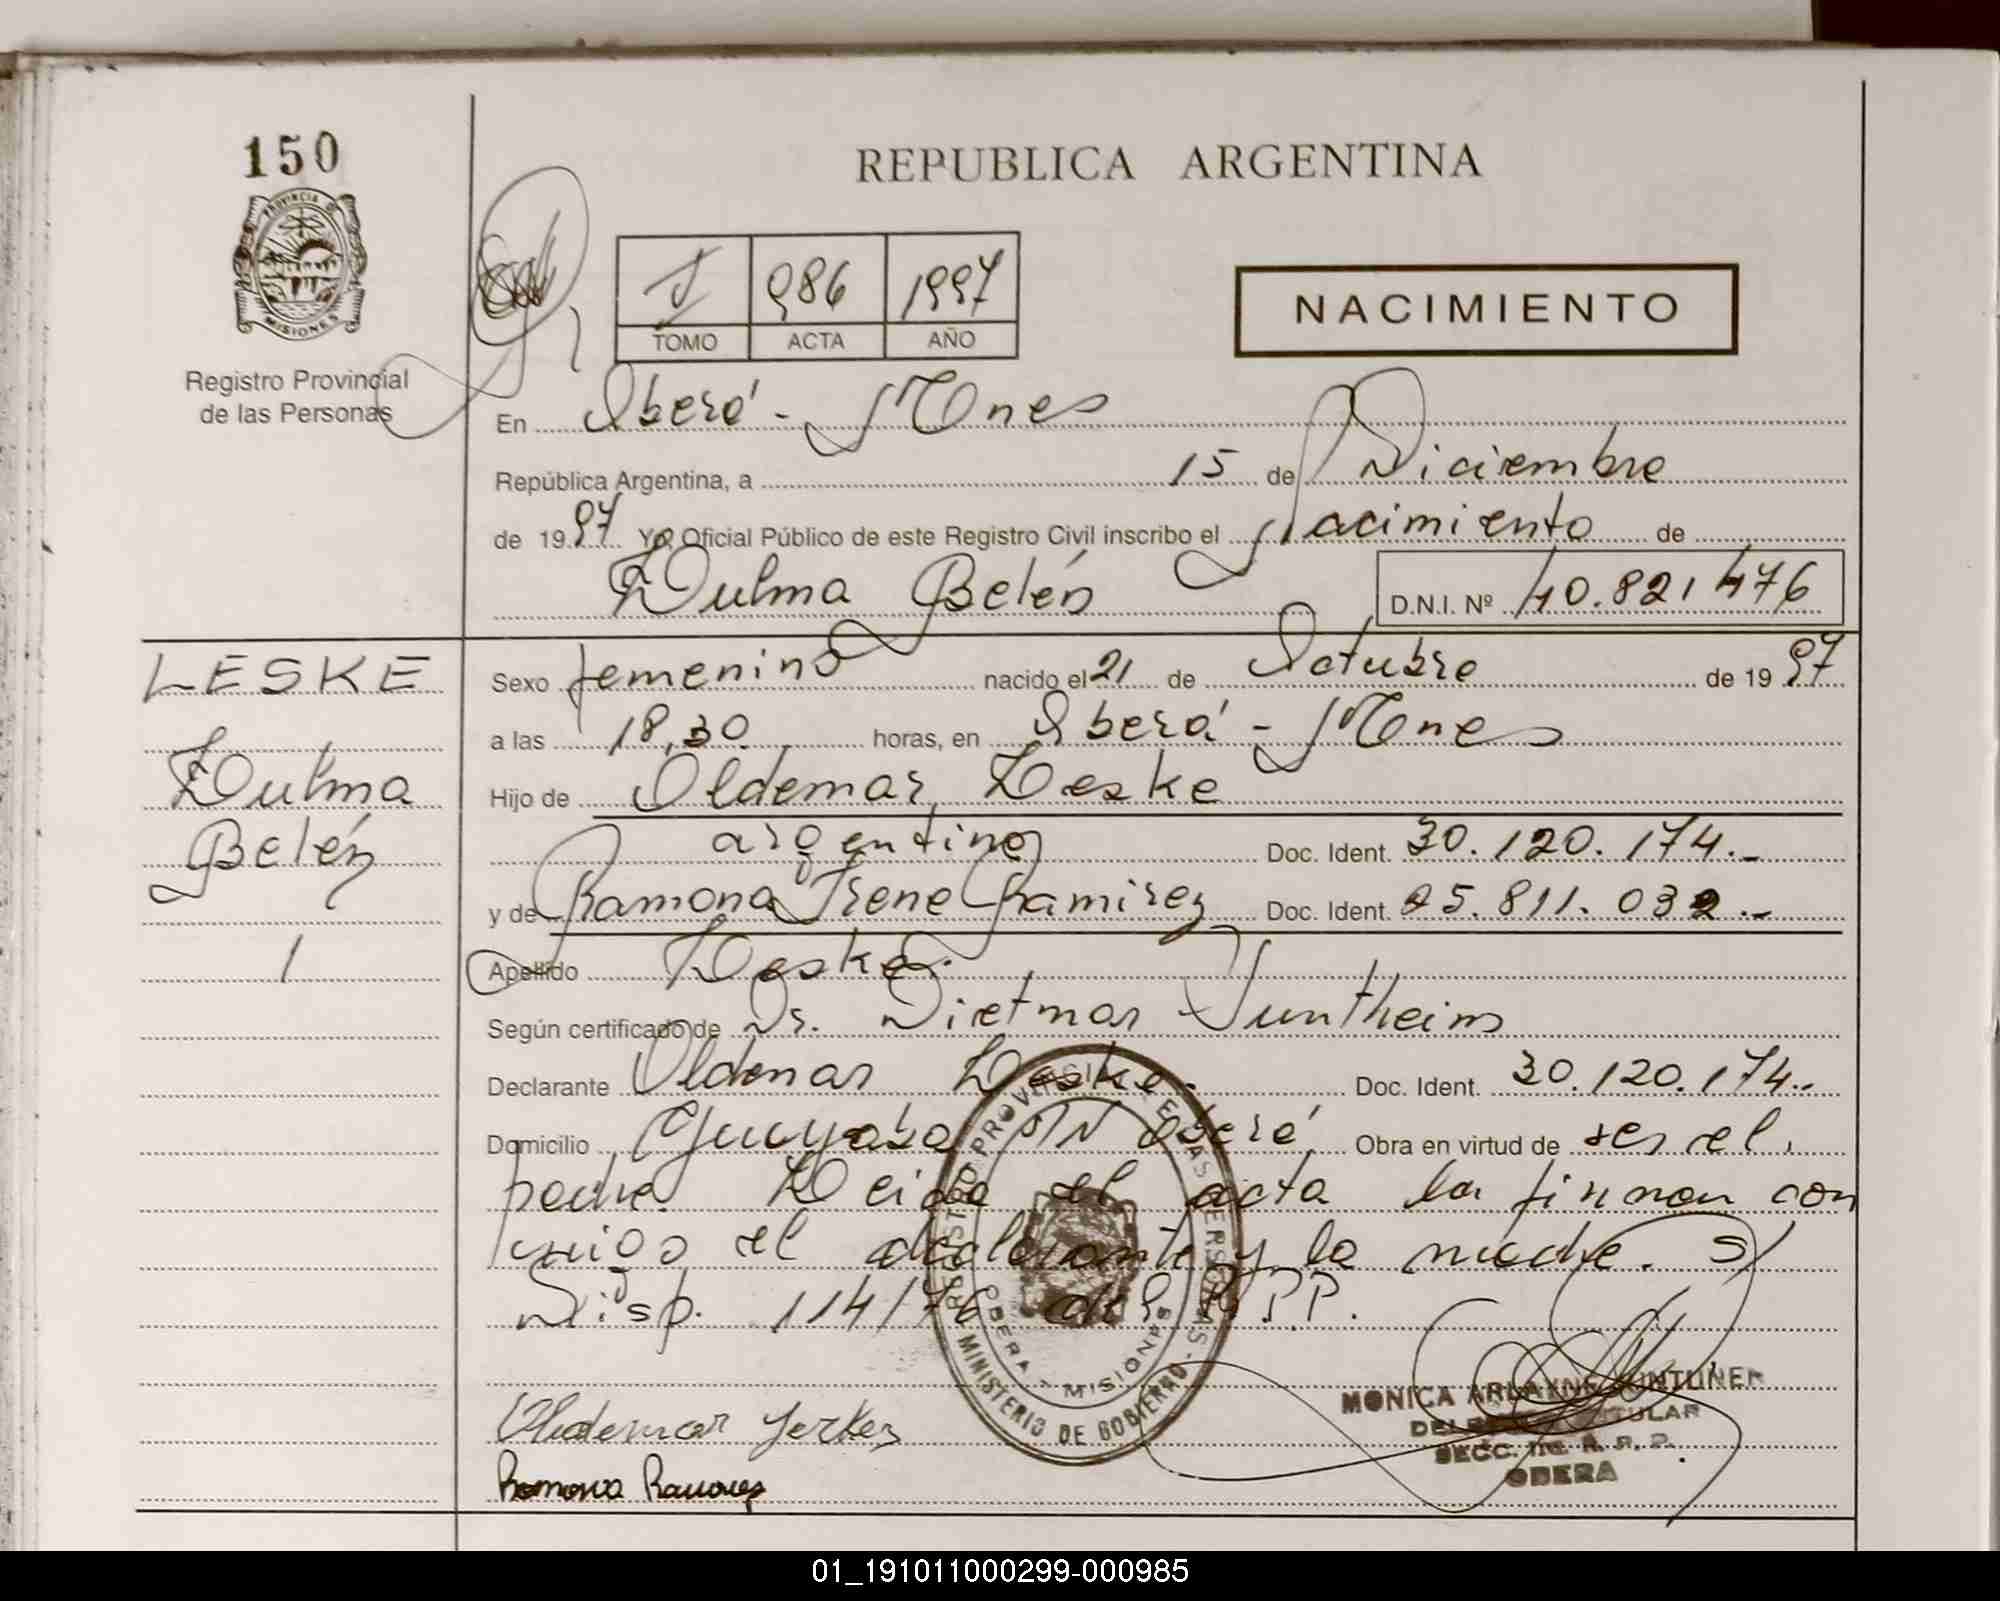 150
REPUBLICA ARGENTINA
PROVINCIA D
MISIONES
I 986 1997
TOMO ACTA AÑO
NACIMIENTO
Registro Provincial
de las Personas
En Oberá - Mnes
República Argentina, a 15 de Diciembre
de 1997 Yo, Oficial Público de este Registro Civil inscribo el Nacimiento de
Zulma Belén D.N.I. Nº 40.821.476
LESKE
Zulma
Belén
1
Sexo femenino nacido el 21 de Octubre de 1997
a las 18,30 horas, en Oberá - Mnes
Hijo de Oldemar Leske
argentino Doc. Ident. 30.120.174.-
y de Ramona Irene Ramirez Doc. Ident. 25.811.032.-
Apellido Leske.
Según certificado de Dr. Dietmar Suntheim
Declarante Oldemar Leske. Doc. Ident. 30.120.174.-
Domicilio Guayabo S/N Oberá Obra en virtud de ser el
padre. Leida el acta la firman con
migo el declarante y la madre. S/
Disp. 114/76 del R.P.P.
REGISTRO PROVINCIAL DE LAS PERSONAS -
MINISTERIO DE GOBIERNO -
OBERA - MISIONES
MONICA ARLAYNE
TITULAR
SECC. R. P. P.
OBERA
Ramona Ramirez
01_191011000299-000985